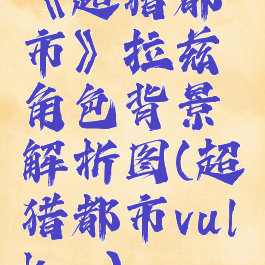 《超猎都
市》拉兹
角色背景
解析图(超
猎都市vul